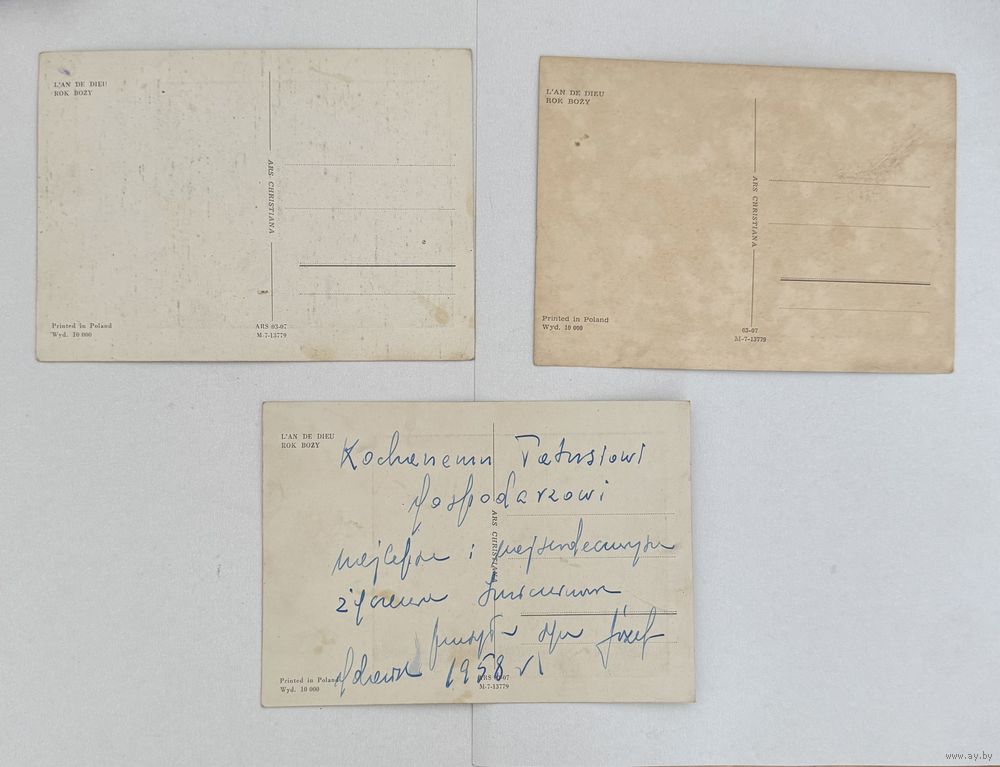 L'AN DE DIEU
ROK BOŻY
ARS CHRISTIANA
Printed in Poland
Wyd. 10 000
ARS 03-07
M-7-13779
L'AN DE DIEU
ROK BOŻY
ARS CHRISTIANA
Printed in Poland
Wyd. 10 000
03-07
M-7-13779
L'AN DE DIEU
ROK BOŻY
Kochanemu Tatusiowi
Gospodarzowi
ARS CHRISTIANA
najlepsze i najserdeczniejsze
życzenia Imieninowe
syn Józef
1958 r
Printed in Poland
Wyd. 10 000
M-7-13779
www.ay.by